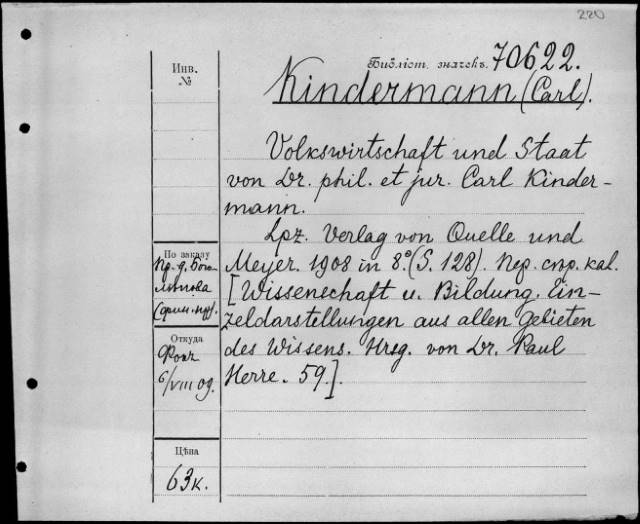 220
Инв.
№
Библіот. значекъ. 70622.
Kindermann (Carl).
Volkswirtschaft und Staat
von Dr. phil. et jur. Carl Kinder-
mann.
Lpz. Verlag von Quelle und
Meyer. 1908 in 8.° (S. 128). Пер. стр. кал.
[Wissenschaft u. Bildung. Ein-
zeldarstellungen aus allen Gebieten
des Wissens. Hrsg. von Dr. Paul
Herre. 59].
По заказу
Пр. д. Бого
лѣпова
Откуда
Фокъ
6/VIII 09.
Цѣна
63к.